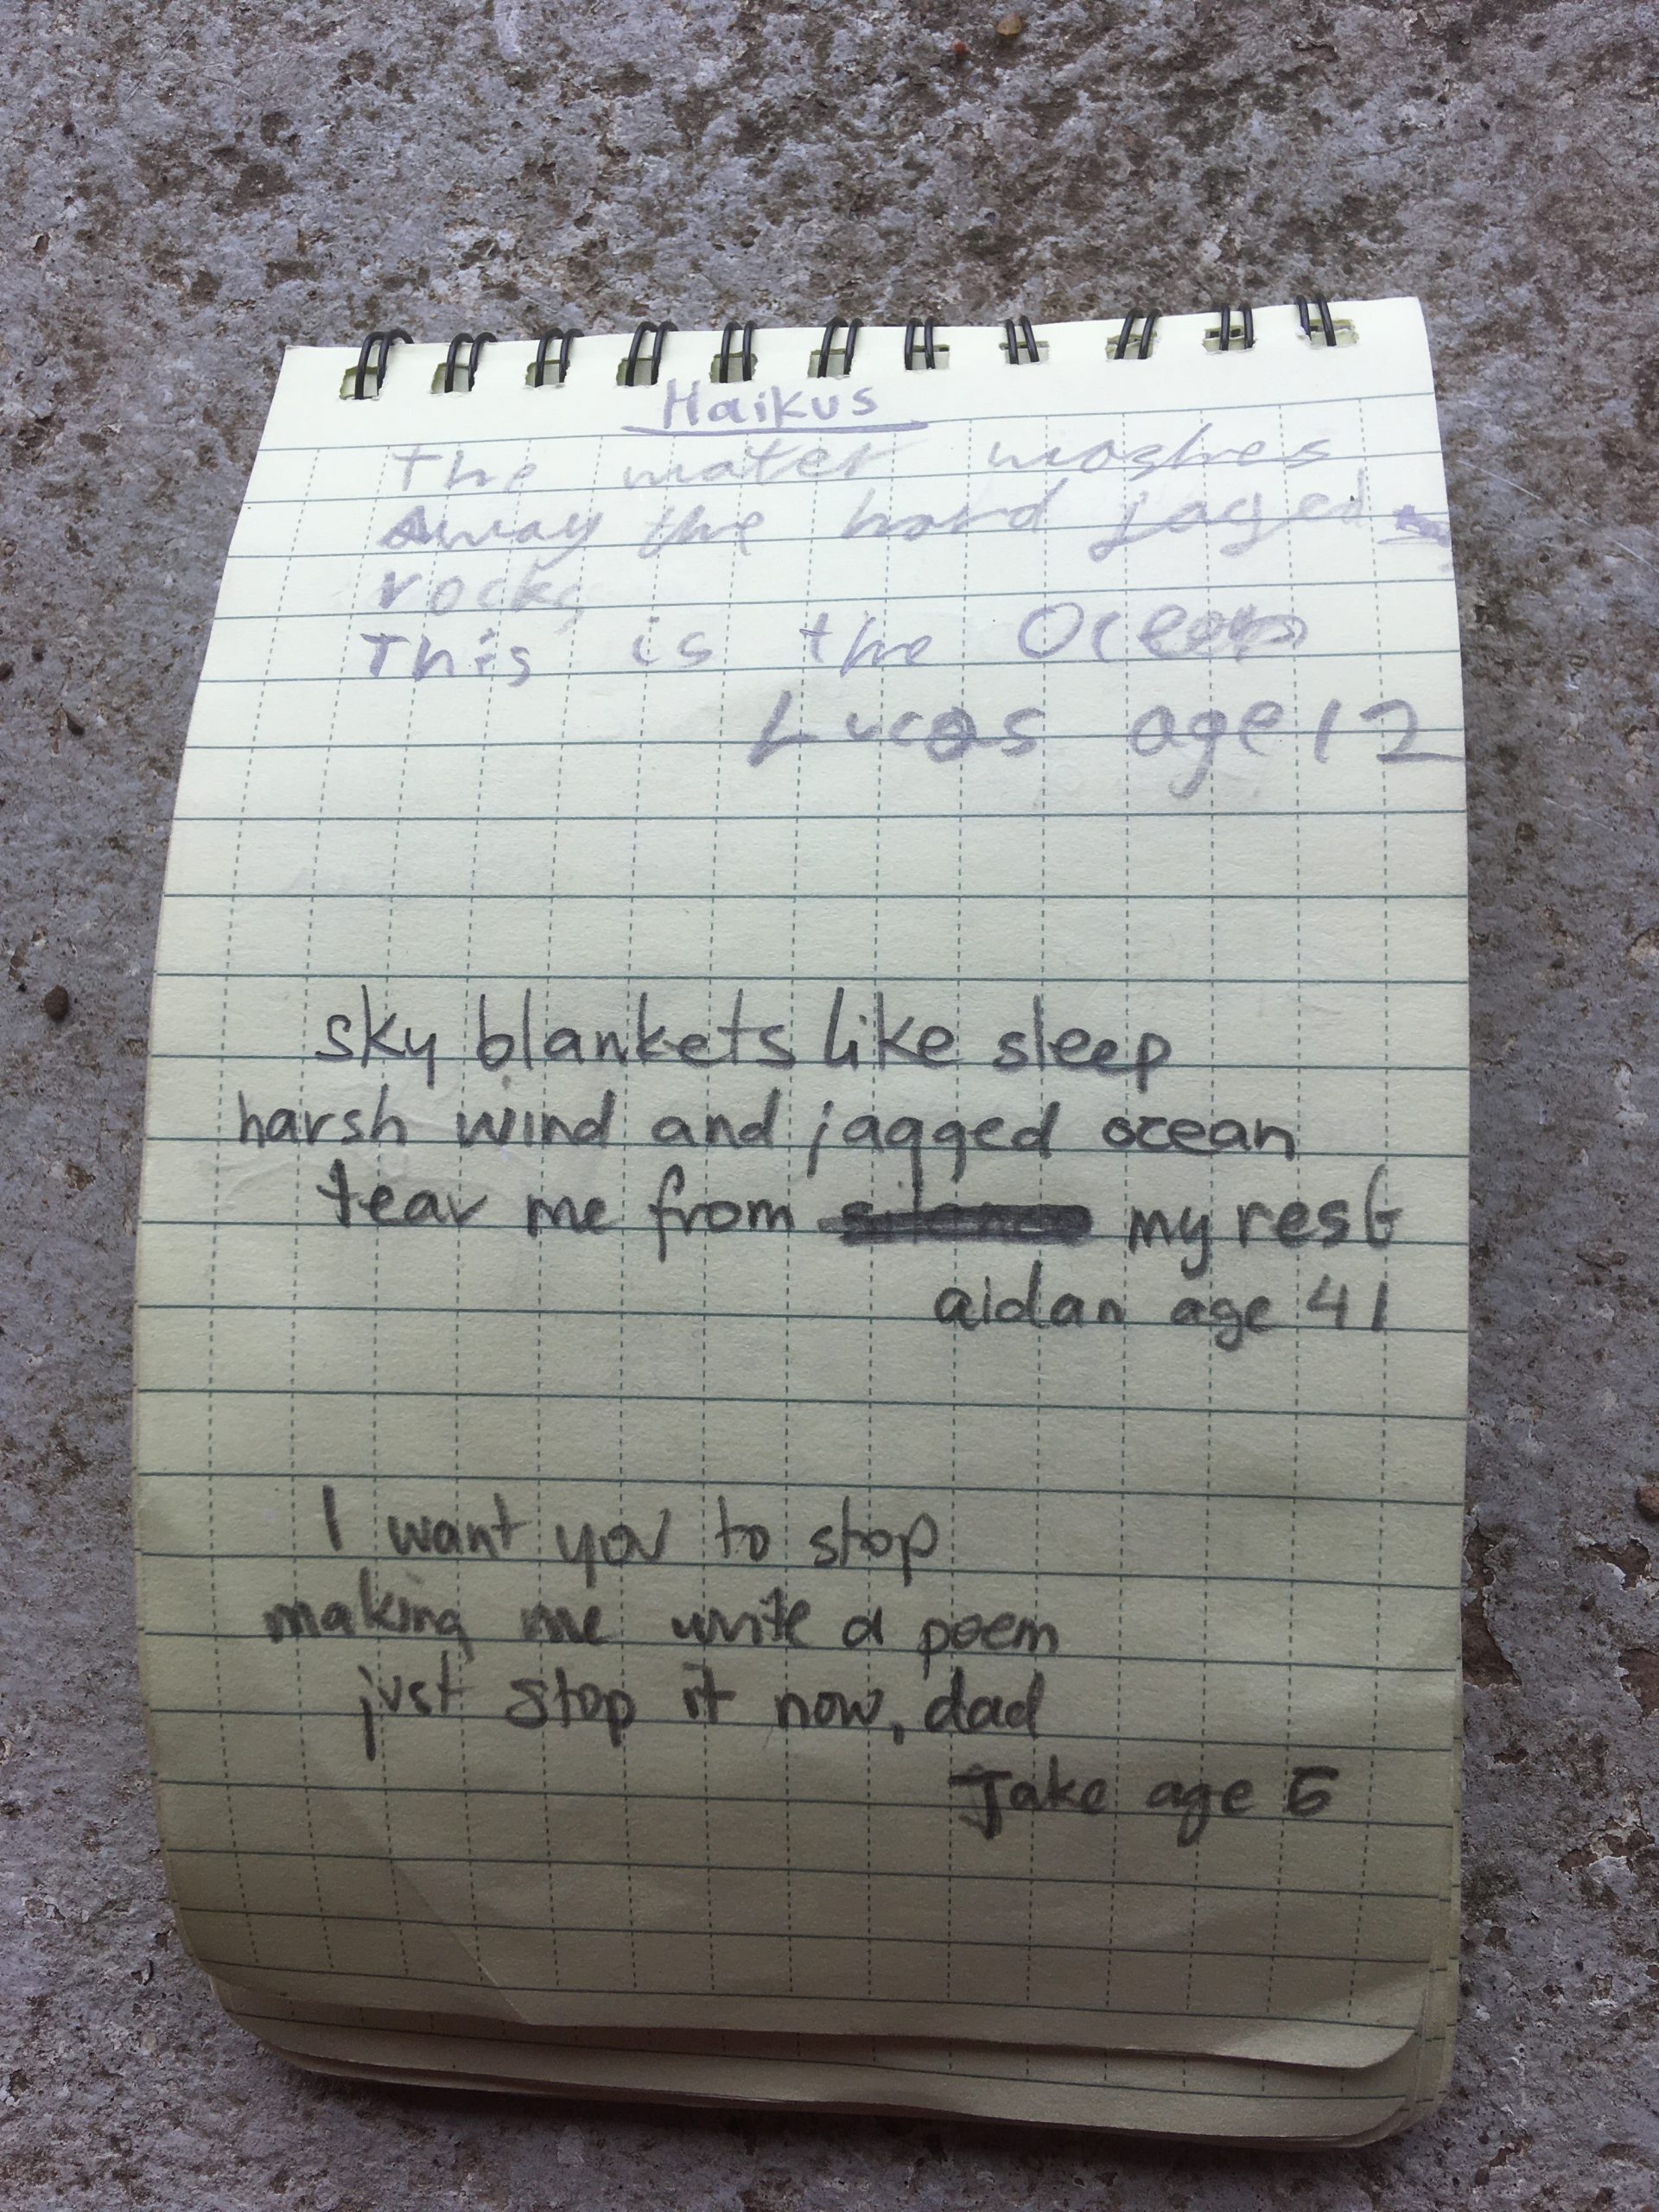 Haikus
The water washes
Away the hard jagged
rocks
This is the Ocean
Lucas age 12
sky blankets like sleep
harsh wind and jagged ocean
tear me from my rest
aidan age 41
I want you to stop
making me write a poem
just stop it now, dad
Jake age 6